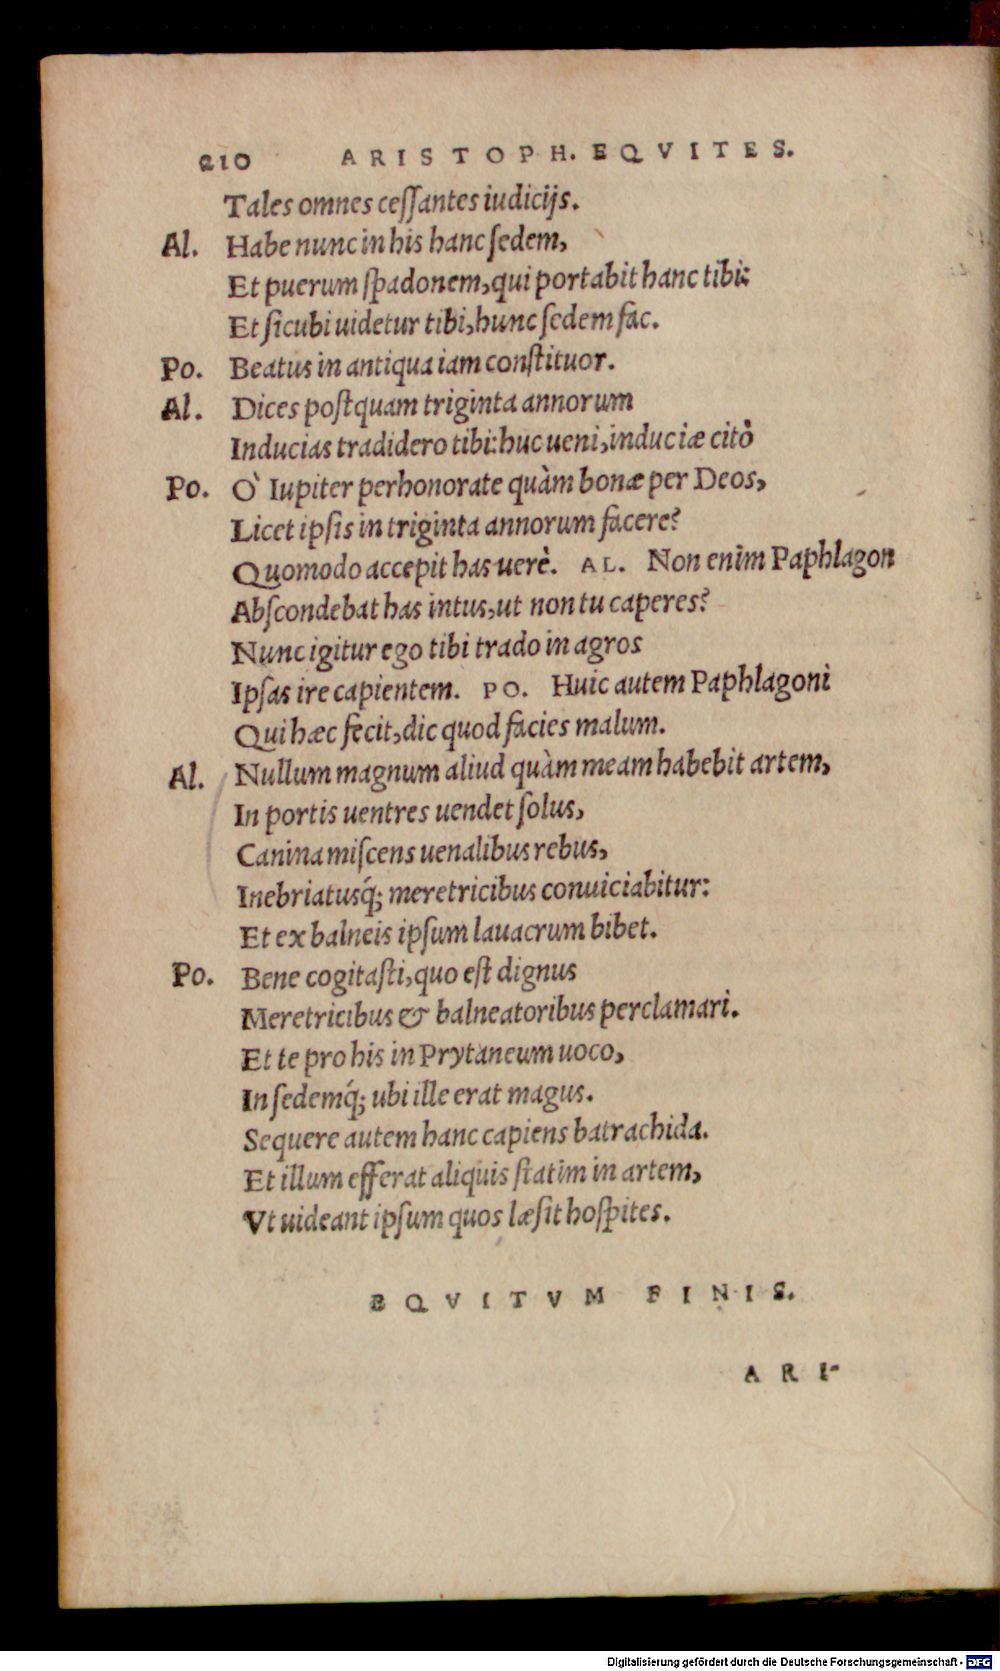 210 ARISTOPH. EQVITES.
Tales omnes cessantes iudicijs.
Al. Habe nunc in his hanc sedem,
Et puerum spadonem, qui portabit hanc tibi:
Et sicubi uidetur tibi, hunc sedem fac.
Po. Beatus in antiqua iam constituor.
Al. Dices postquam triginta annorum
Inducias tradidero tibi: huc ueni, induciæ citò
Po. Ò Iupiter perhonorate quàm bonæ per Deos,
Licet ipsis in triginta annorum facere?
Quomodo accepit has uerè. AL. Non enim Paphlagon
Abscondebat has intus, ut non tu caperes?
Nunc igitur ego tibi trado in agros
Ipsas ire capientem. PO. Huic autem Paphlagoni
Qui hæc fecit, dic quod facies malum.
Al. Nullum magnum aliud quàm meam habebit artem,
In portis uentres uendet solus,
Canina miscens uenalibus rebus,
Inebriatusq́; meretricibus conuiciabitur:
Et ex balneis ipsum lauacrum bibet.
Po. Bene cogitasti, quo est dignus
Meretricibus & balneatoribus perclamari.
Et te pro his in Prytaneum uoco,
In sedemq́; ubi ille erat magus.
Sequere autem hanc capiens batrachida.
Et illum efferat aliquis statim in artem,
Vt uideant ipsum quos læsit hospites.
EQVITVM FINIS.
ARI-
Digitalisierung gefördert durch die Deutsche Forschungsgemeinschaft - DFG